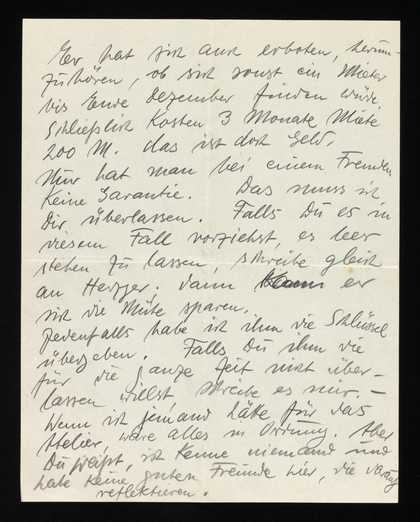 Er hat sich auch erboten, herum-
zuhören, ob sich sonst ein Mieter
bis Ende Dezember finden würde.
Schließlich Kosten 3 Monate Miete
200 M. das ist doch Geld,
Nur hat man bei einem Fremden
Keine Garantie. Das muss ich
Dir überlassen. Falls Du es in
diesem Fall vorziehst, es leer
stehen zu lassen, schreibe gleich
an Herzger, dann kann er
sich die Mühe sparen.
Jedenfalls habe ich ihm die Schlüssel
übergeben. Falls Du ihm die
für die ganze Zeit nicht über-
lassen willst, schreibe es mir. –
Wenn ich jemand hätte für das
Atelier, wäre alles in Ordnung. Aber
Du weißt, ich Kenne niemand und
habe Keine guten Freunde hier, die darauf
reflektieren.